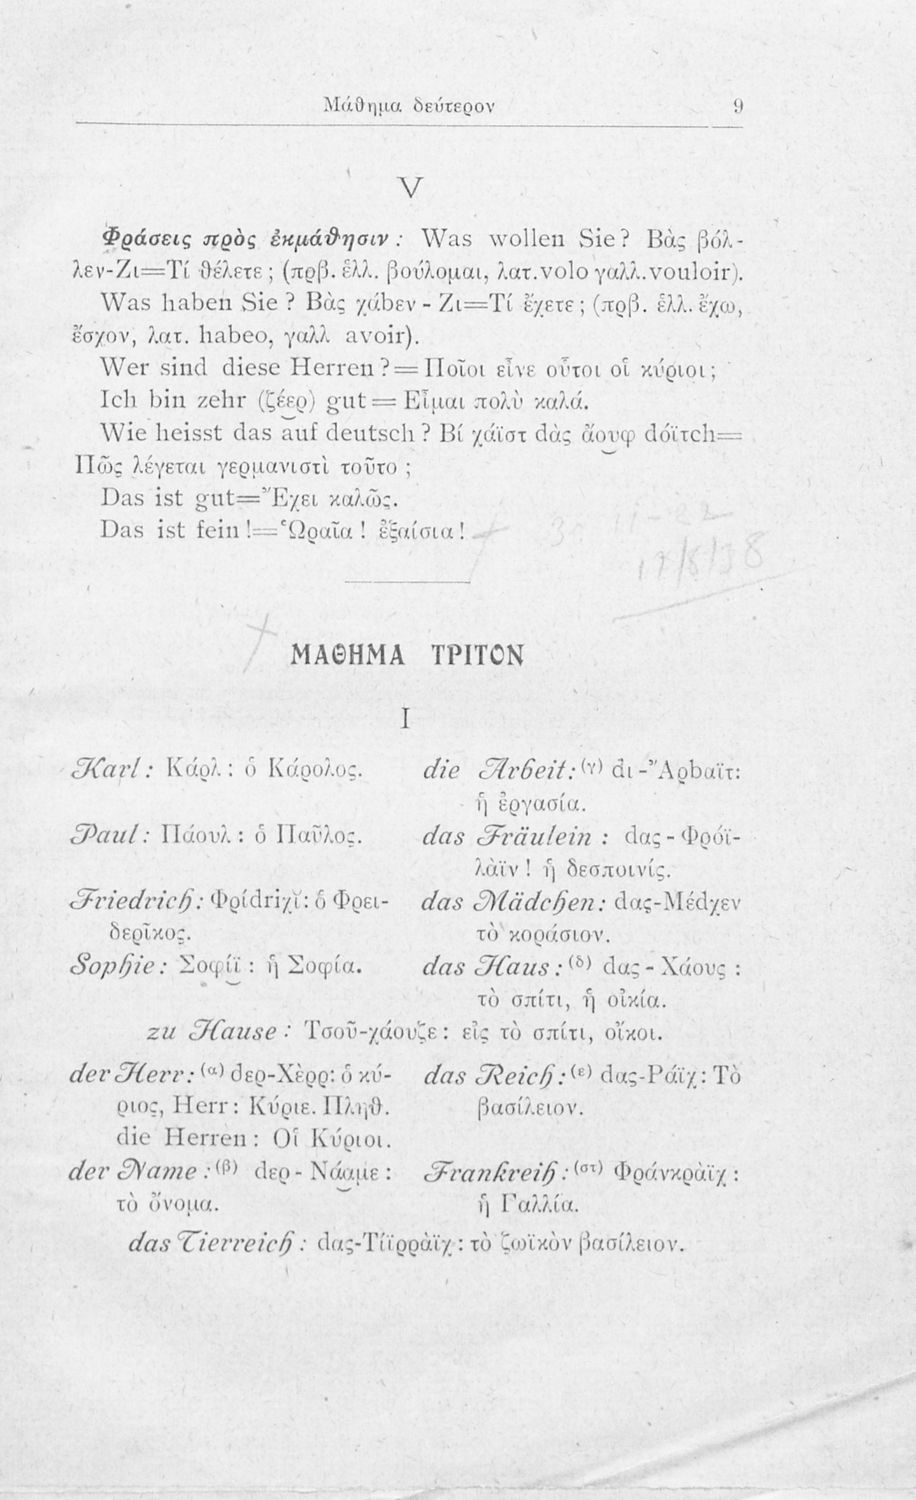 Μάθημα δεύτερον 9
V
Φράσεις πρὸς ἐκμάθησιν : Was wollen Sie? Βὰς βόλ-
λεν-Ζι=Τί θέλετε ; (πρβ. ἑλλ. βούλομαι, λατ. volo γαλλ. vouloir).
Was haben Sie ? Βὰς χάbεν - Ζι=Τί ἔχετε ; (πρβ. ἑλλ. ἔχω,
ἔσχον, λατ. habeo, γαλλ avoir).
Wer sind diese Herren ? = Ποῖοι εἶνε οὗτοι οἱ κύριοι ;
Ich bin zehr (ζέερ) gut = Εἶμαι πολὺ καλά.
Wie heisst das auf deutsch ? Βί χάϊστ dὰς ἄουφ dόϊτch=
Πῶς λέγεται γερμανιστὶ τοῦτο ;
Das ist gut=Ἔχει καλῶς.
Das ist fein !=Ὡραῖα ! ἐξαίσια !
30 11-22
17/8/38
ΜΑΘΗΜΑ ΤΡΙΤΟΝ
I
Karl : Κάρλ : ὁ Κάρολος.
die Arbeit : (γ) dι-Ἄρbαϊτ:
ἡ ἐργασία.
Paul : Πάουλ : ὁ Παῦλος.
das Fräulein : dας - Φρόϊ-
λὰϊν ! ἡ δεσποινίς.
Friedrich : Φρίdριχῐ : ὁ Φρει-
δερῖκος.
das Mädchen : dας-Μέdχεν
τὸ κοράσιον.
Sophie : Σοφίϊ : ἡ Σοφία.
das Haus : (δ) dας - Χάους :
τὸ σπίτι, ἡ οἰκία.
zu Hause : Τσοῦ-χάουζε : εἰς τὸ σπίτι, οἴκοι.
der Herr : (α) dερ-Χὲρρ: ὁ κύ-
ριος, Herr : Κύριε. Πληθ.
die Herren : Οἱ Κύριοι.
das Reich : (ε) dας-Ράϊχ : Τὸ
βασίλειον.
der Name : (β) dερ - Νάαμε :
τὸ ὄνομα.
Frankreih : (στ) Φράνκρὰϊχ :
ἡ Γαλλία.
das Tierreich : dας-Τίϊρρὰϊχ : τὸ ζωϊκὸν βασίλειον.